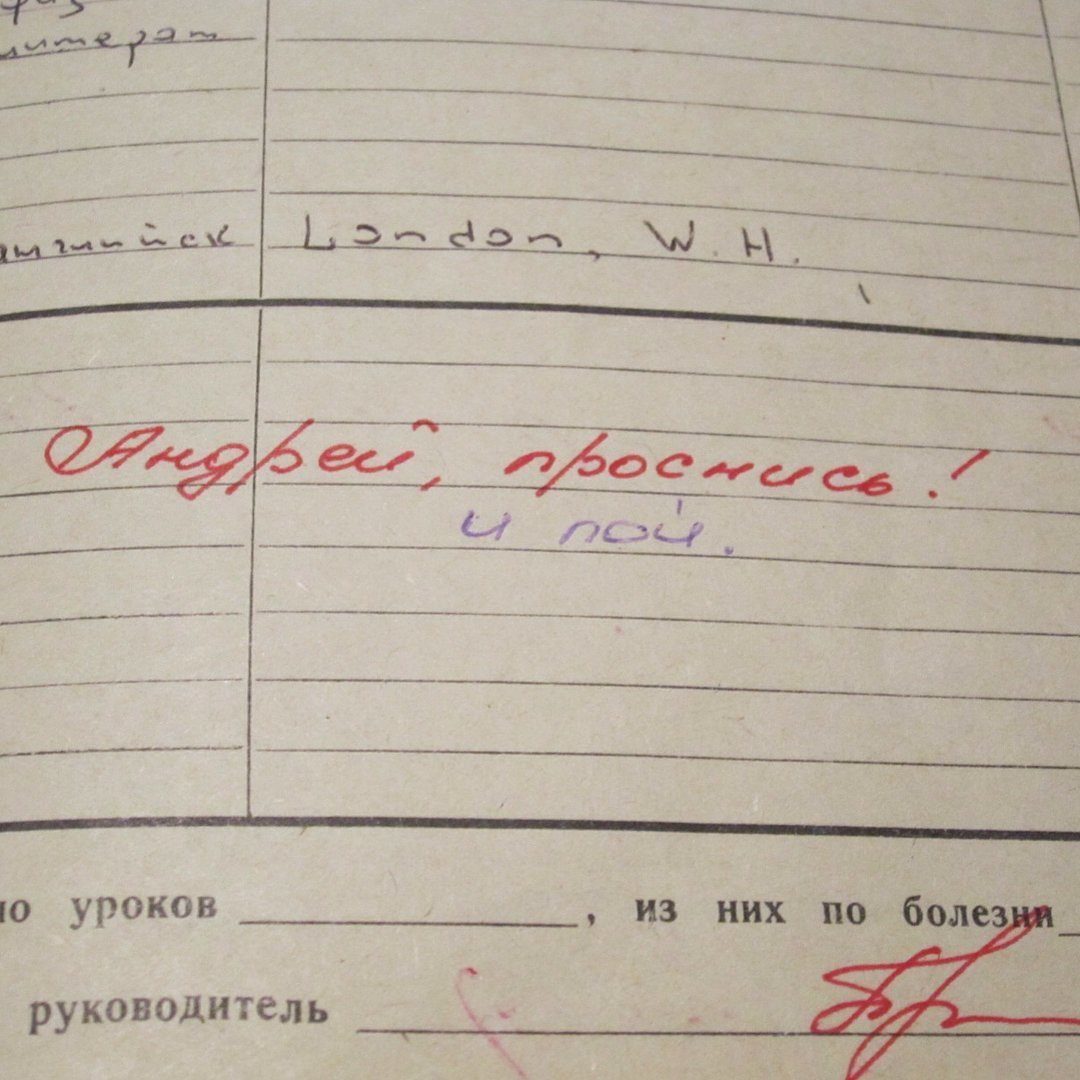 литерат
английск London, W.H.
Андрей, проснись!
и пой.
уроков , из них по болезни
руководитель